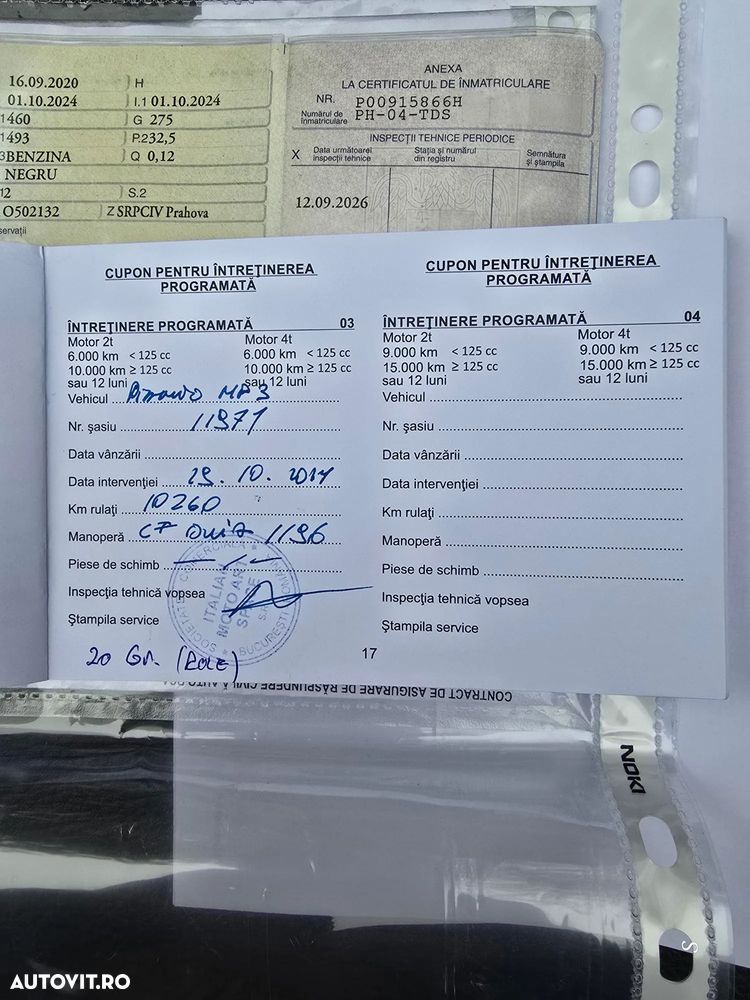 16.09.2020 H
01.10.2024 I.1 01.10.2024
1460 G 275
1493 P.2 32,5
3 BENZINA Q 0,12
NEGRU
12 S.2
O502132 Z SRPCIV Prahova
servații
ANEXA
LA CERTIFICATUL DE ÎNMATRICULARE
NR. P00915866H
Numărul de înmatriculare PH-04-TDS
INSPECȚII TEHNICE PERIODICE
X Data următoarei inspecții tehnice Stația și numărul din registru Semnătura și ștampila
12.09.2026
CUPON PENTRU ÎNTREŢINEREA
PROGRAMATĂ
ÎNTREŢINERE PROGRAMATĂ 03
Motor 2t Motor 4t
6.000 km < 125 cc 6.000 km < 125 cc
10.000 km ≥ 125 cc 10.000 km ≥ 125 cc
sau 12 luni sau 12 luni
Vehicul MP3
Nr. şasiu 11971
Data vânzării
Data intervenţiei 29.10.2014
Km rulaţi 10260
Manoperă CF 1196
Piese de schimb — / —
Inspecţia tehnică vopsea
Ştampila service
SOCIETATE COMERCIALĂ
ITALIAN
MOTOART
BUCUREŞTI
20 Gr. (ROLE)
CUPON PENTRU ÎNTREŢINEREA
PROGRAMATĂ
ÎNTREŢINERE PROGRAMATĂ 04
Motor 2t Motor 4t
9.000 km < 125 cc 9.000 km < 125 cc
15.000 km ≥ 125 cc 15.000 km ≥ 125 cc
sau 12 luni sau 12 luni
Vehicul
Nr. şasiu
Data vânzării
Data intervenţiei
Km rulaţi
Manoperă
Piese de schimb
Inspecţia tehnică vopsea
Ştampila service
17
CONTRACT DE ASIGURARE DE RĂSPUNDERE CIVILĂ AUTO
NOKI
S
AUTOVIT.RO